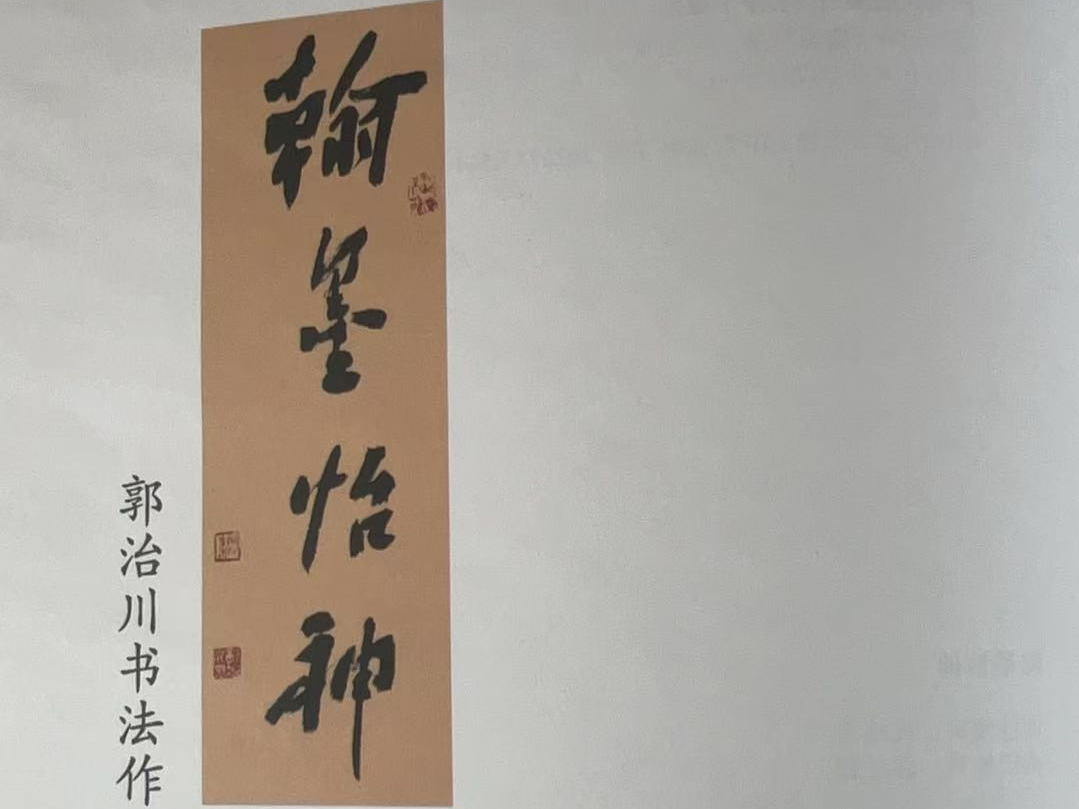 翰墨怡神
郭治川书法作